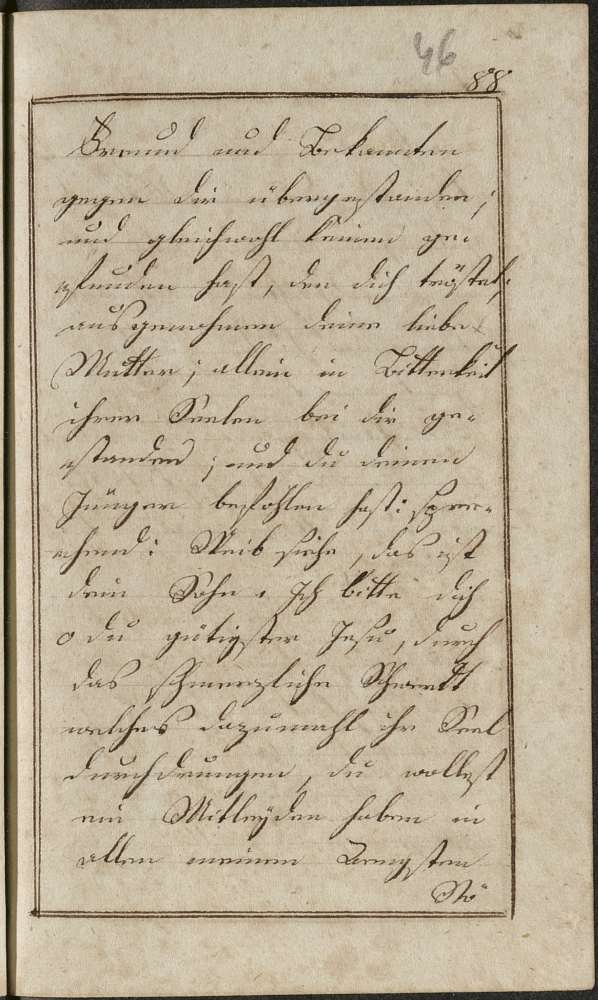 46
88
Freund und Bekannten
gegen dir übergestanden;
und gleichwohl keinen ge-
funden hast, der dich tröstet;
ausgenohmen deine liebe
Mutter; allein in Bitterkeit
ihrer Seelen bei dir ge-
standen; und du deinem
Jünger befohlen hast: spre-
chend: Weib siehe, das ist
dein Sohn. Ich bitte dich
o du gütigster Jesu, durch
das schmerzliche Schwerdt
welches dazumahl ihr Seel
durchdrungen, du wollest
ein Mitleyden haben in
allen meinen Aengsten